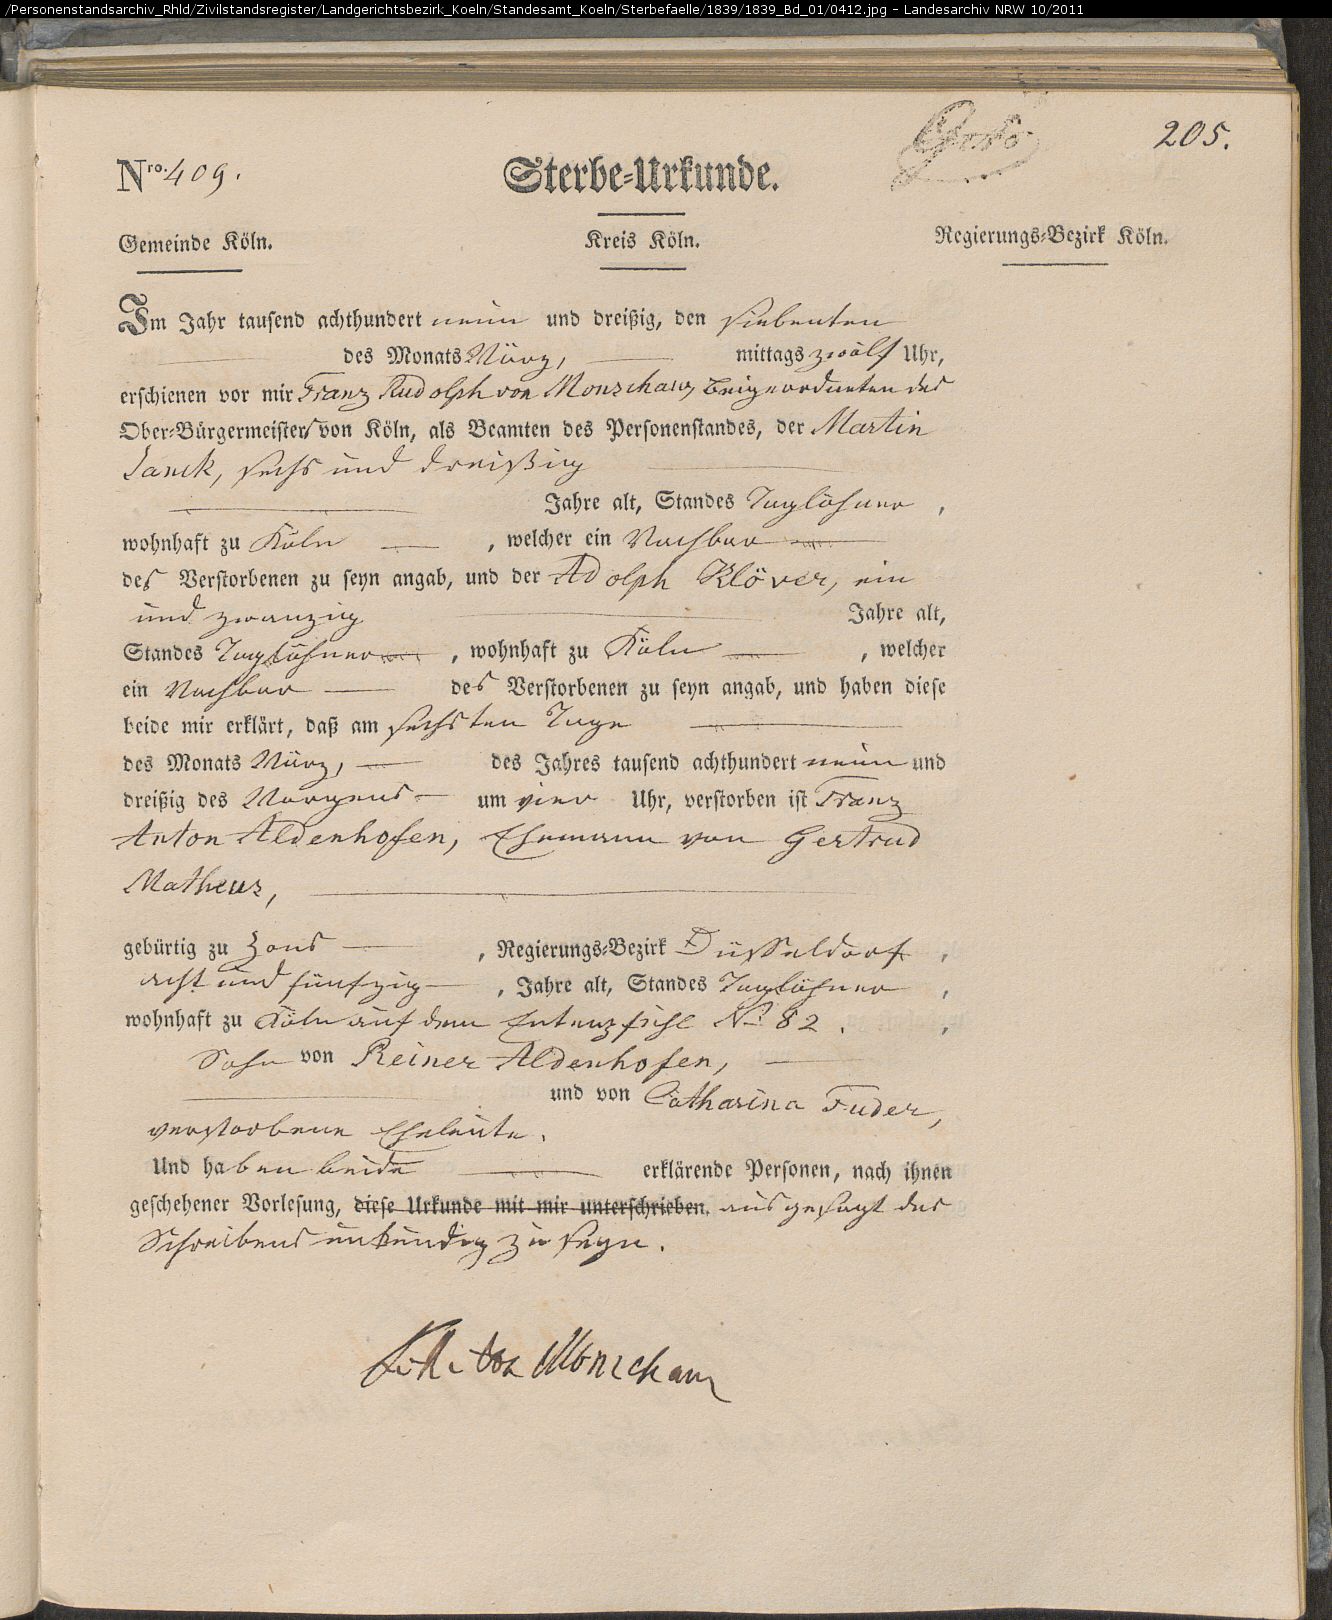 /Personenstandsarchiv_Rhld/Zivilstandsregister/Landgerichtsbezirk_Koeln/Standesamt_Koeln/Sterbefaelle/1839/1839_Bd_01/0412.jpg - Landesarchiv NRW 10/2011
205.
Nro. 409.
Sterbe-Urkunde.
Gemeinde Köln. Kreis Köln. Regierungs-Bezirk Köln.
Im Jahr tausend achthundert neun und dreißig, den siebenten
des Monats März, mittags zwölf Uhr,
erschienen vor mir Franz Rudolph von Monschaw, Beigeordneten des
Ober-Bürgermeisters von Köln, als Beamten des Personenstandes, der Martin
Janck, sechs und dreißig
Jahre alt, Standes Taglöhner,
wohnhaft zu Köln, welcher ein Nachbar
des Verstorbenen zu seyn angab, und der Adolph Klöver, ein
und zwanzig Jahre alt,
Standes Taglöhner, wohnhaft zu Köln, welcher
ein Nachbar des Verstorbenen zu seyn angab, und haben diese
beide mir erklärt, daß am sechsten Tage
des Monats März, des Jahres tausend achthundert neun und
dreißig des Morgens um vier Uhr, verstorben ist Franz
Anton Aldenhofen, Ehemann von Gertrud
Matheus,
gebürtig zu Zons, Regierungs-Bezirk Düsseldorf,
acht und fünfzig, Jahre alt, Standes Taglöhner,
wohnhaft zu Köln auf dem Entenpfuhl No 82.,
Sohn von Reiner Aldenhofen,
und von Catharina Fuder,
verstorbene Eheleute.
Und haben beide erklärende Personen, nach ihnen
geschehener Vorlesung, diese Urkunde mit mir unterschrieben. ausgesagt des
Schreibens unkundig zu seyn.
von Monschaw